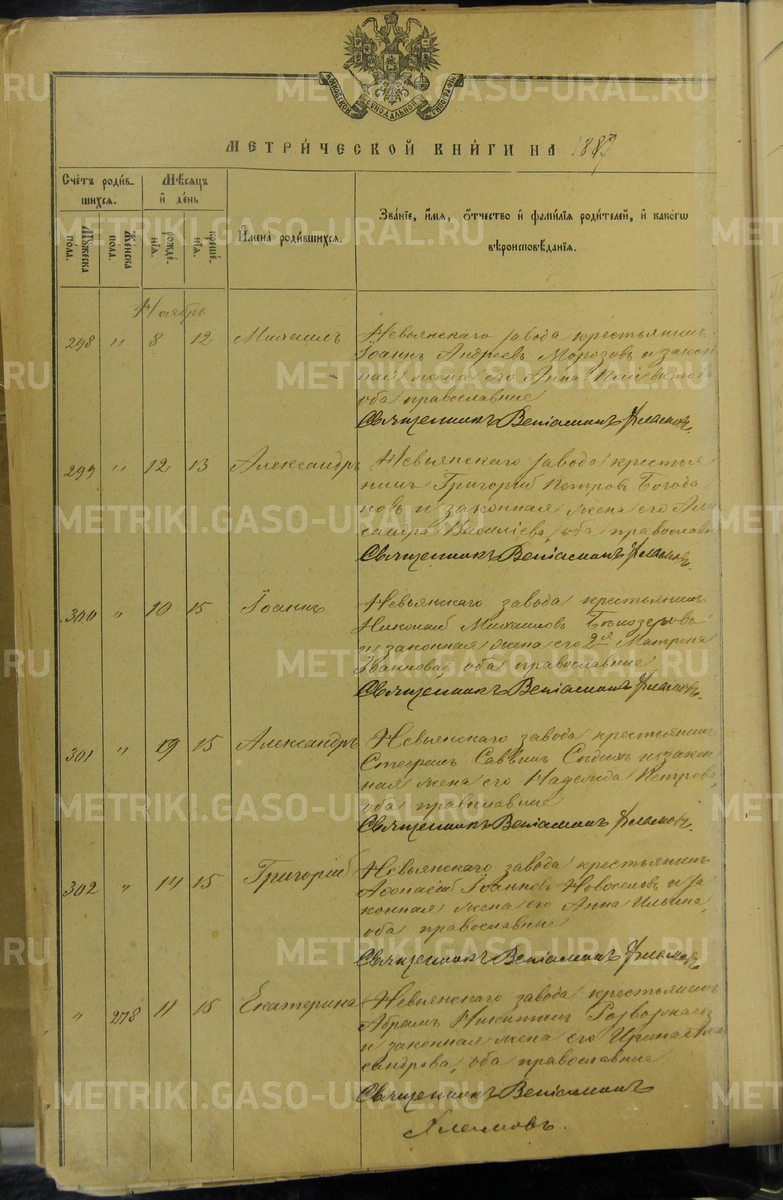 МОСКОВСКОЙ СѴНОДАЛЬНОЙ ТИПОГРАФІИ
МЕТРИ́ЧЕСКОЙ КНИ́ГИ НА 188
Сче́тъ роди́в-
шихся.
Мѣ́сяцъ
и҆ де́нь
И҆мена̀ роди́вшихся.
Зва́нїе, и҆́мя, ѻ҆́тчество и҆ фами́лїя роди́телей, и҆ како́гѡ
вѣроисповѣ́данїя.
Му́жеска по́ла.
Же́нска по́ла.
рожде́нїя.
креще́нїя.
Ноябрь
298 " 8 12 Михаилъ Невьянскаго завода крестьянинъ
Іоаннъ Андреевъ Морозовъ и закон
ная жена его Анна
оба православные
Священникъ Веніаминъ
299 " 12 13 Александръ Невьянскаго завода крестья
нинъ Григорій Петровъ Богода
новъ и законная жена его Але
ксандра Василіева, оба православн
Священникъ Веніаминъ
300 " 10 15 Іоаннъ Невьянскаго завода крестьянинъ
Николай Михаиловъ Бѣлозеровъ
и законная жена его 2й Матрона
Іваннова, оба православные
Священникъ Веніаминъ
301 " 19 15 Александръ Невьянскаго завода крестьянинъ
Стефанъ Саввинъ и закон
ная жена его Надежда Петрова
оба православные
Священникъ Веніаминъ
302 " 14 15 Григорій Невьянскаго завода крестьянинъ
Афонасій Іоанновъ Новоселовъ и за
конная жена его Анна Ильина,
оба православные
Священникъ Веніаминъ
" 278 11 15 Екатерина Невьянскаго завода крестьянинъ
Абрамъ Никитинъ
и законная жена его Ирина Алек
сандрова, оба православные
Священникъ Веніаминъ
METRIKI.GASO-URAL.RU